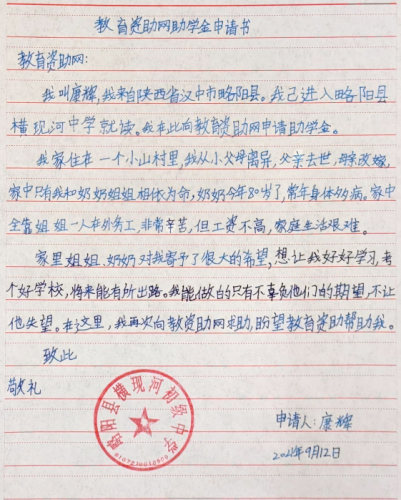 教育资助网助学金申请书
教育资助网:
我叫康辉,我来自陕西省汉中市略阳县。我已进入略阳县
横现河中学就读。我在此向教育资助网申请助学金。
我家住在一个小山村里,我从小父母离异,父亲去世,母亲改嫁,
家中只有我和奶奶姐姐相依为命,奶奶今年80岁了,常年身体多病。家中
全靠姐姐一人在外务工,非常辛苦,但工资不高,家庭生活艰难。
家里姐姐、奶奶对我寄予了很大的希望,想让我好好学习,考
个好学校,将来能有所出路。我能做的只有不辜负他们的期望,不让
他失望。在这里,我再次向教资助网求助,盼望教育资助帮助我。
致此
敬礼
略阳县横现河初级中学
申请人:康辉
9月12日